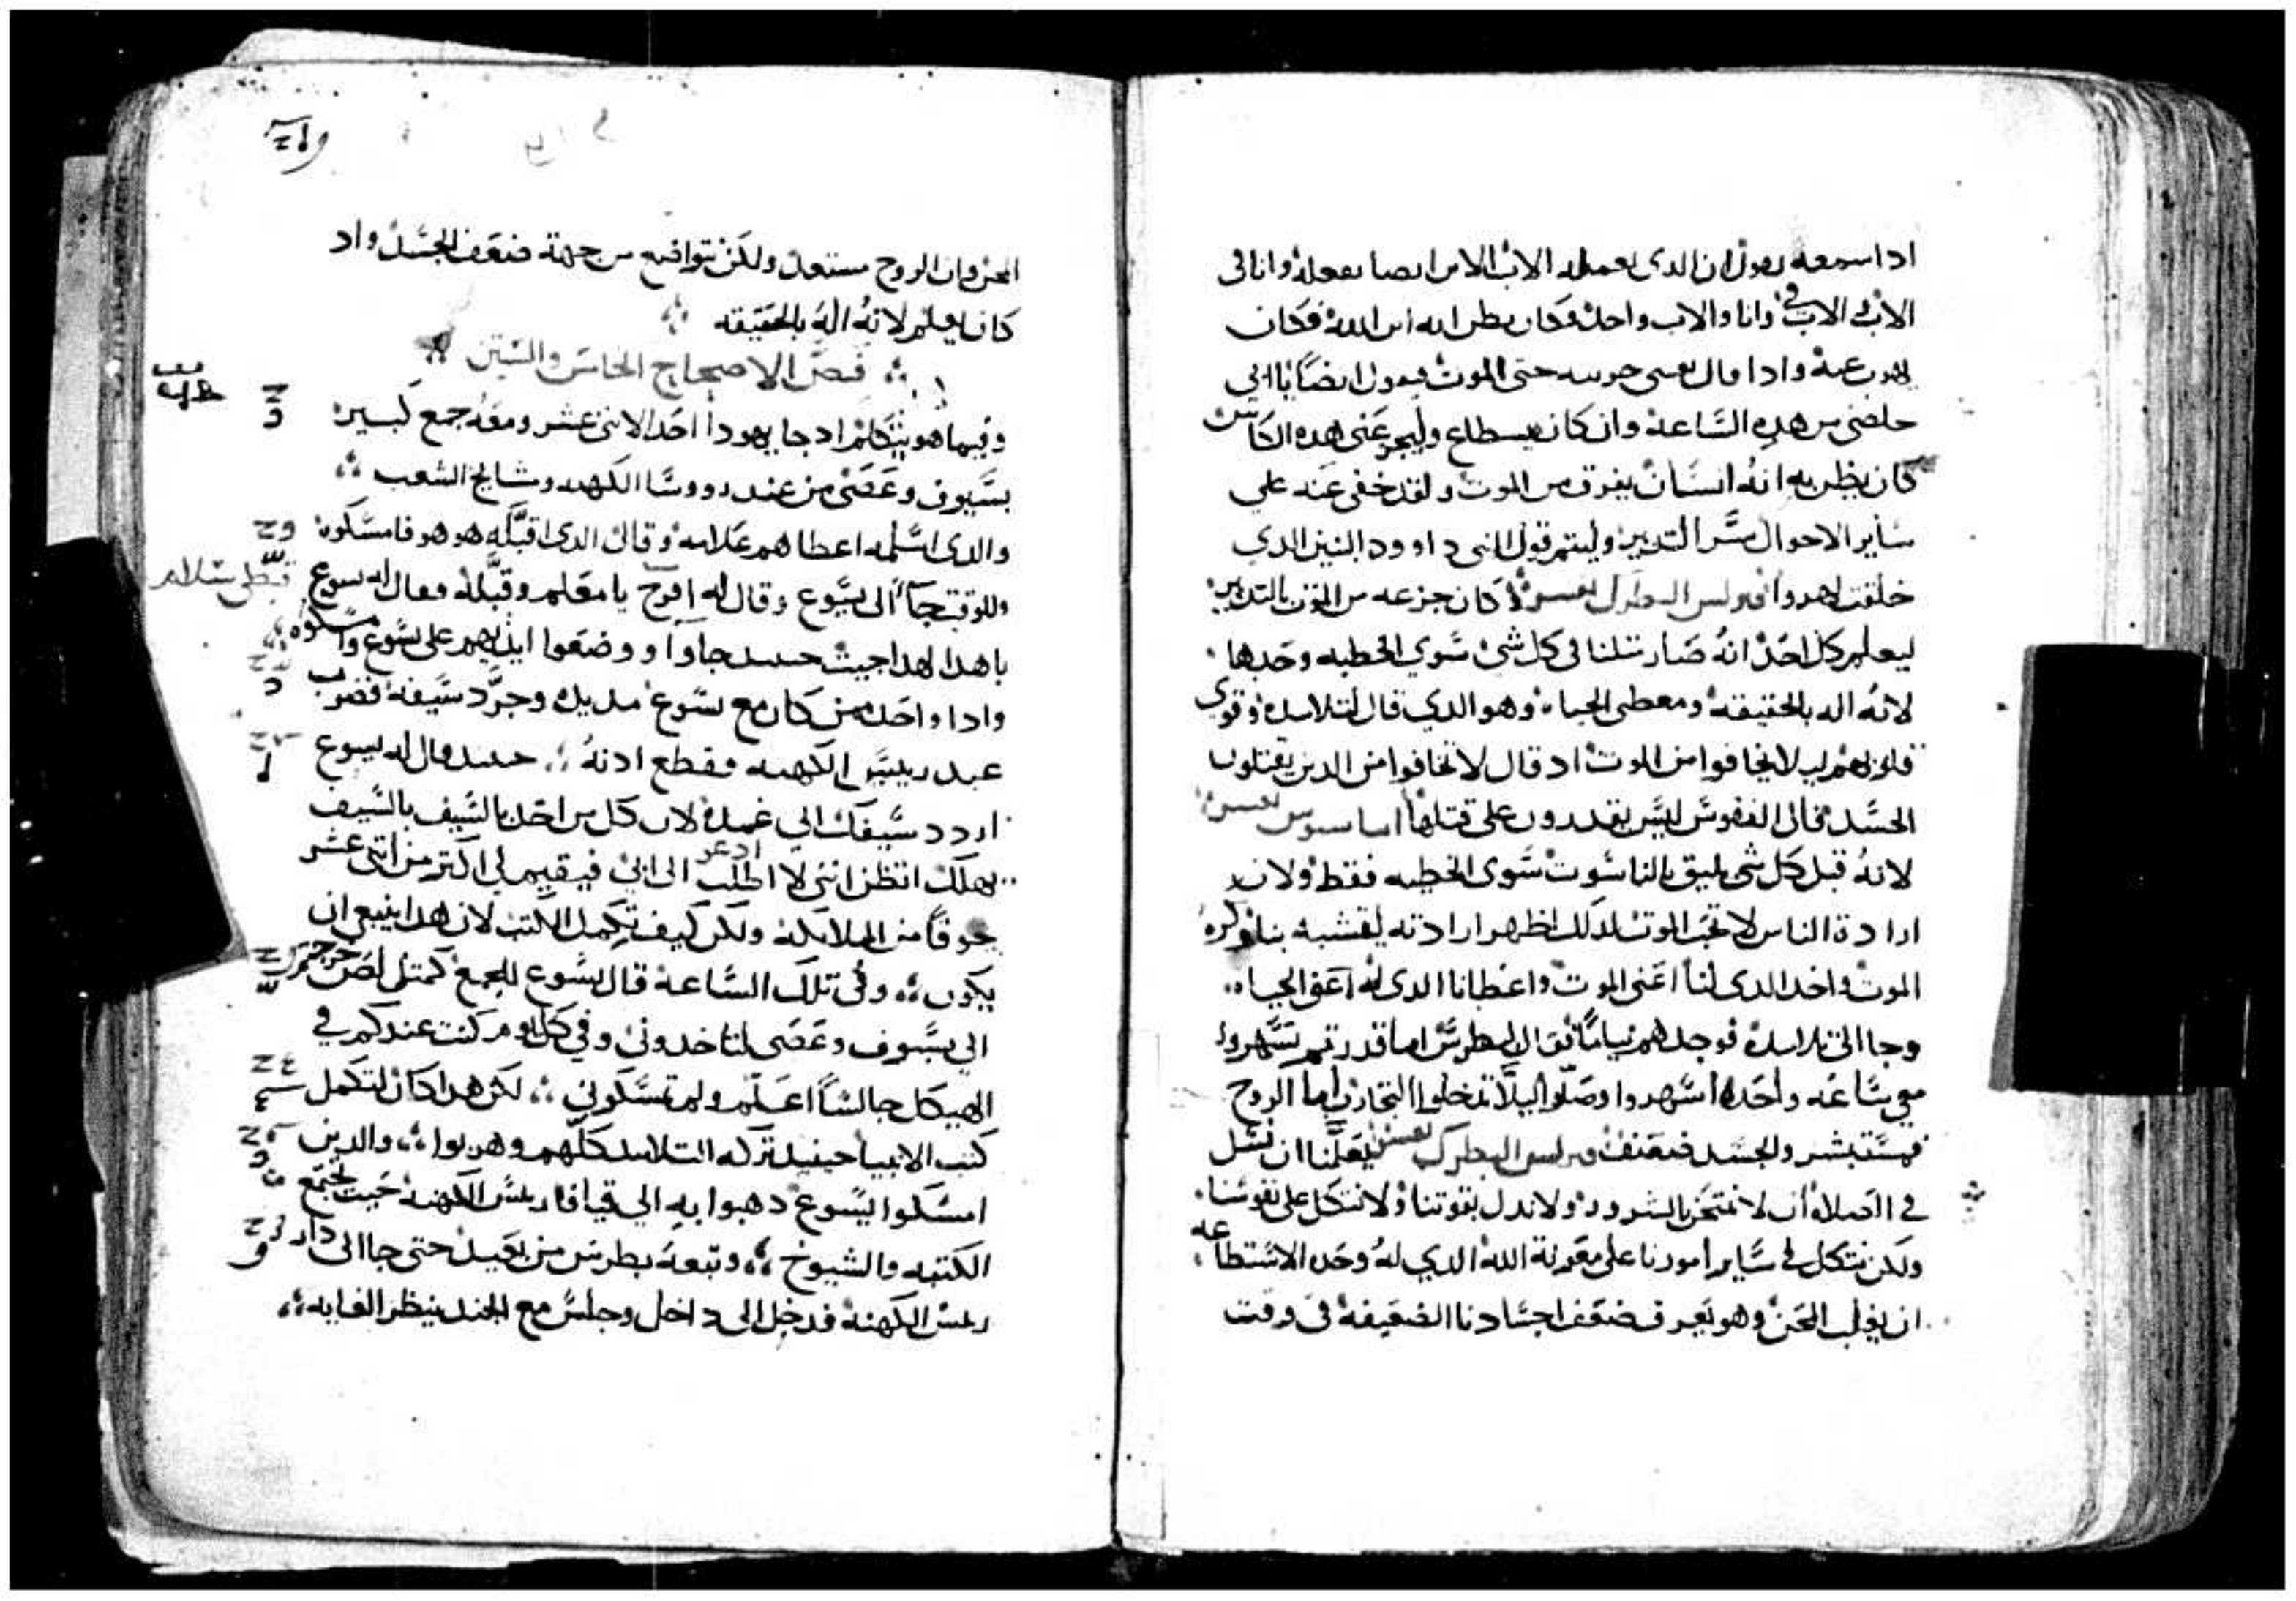 ادا سمعه يقول ان الدى يعمله الاب الابن ايضا يفعله وانا فى
الاب والاب فى وانا والاب واحد وكان يظن انه ابن الله فكان
يهرب عنه وادا قال نفسى حزينه حتى الموت ويقول ايضًا يا ابى
خلصنى من هده السَّاعة وان كان يسطاع وليجز عَنى هده الكاس
كان يظن به انهُ انسَان يفزق من الموت ولقد خفى عَنه علي
سَاير الاحوال سَّر التدبير وليتم قول النبى داوود التنين الدي
خلقت لهدوا كان جزعه من الموت بالتدبير
ليعلم كل احَد انهُ صَار متلنا فى كل شى سَوي الخطيه وحَدها
لانهُ اله بالحقيقة ومعطى الحياه وهو الدي قال لتلاميده وقوي
قلوبهم لا يخافوا من الموت اد قال لا تخافوا من الدين يقتلون
الجسَّد فاما النفوسَ ليسَّ يقدرون على قتلها
لانهُ قبل كل شى يليق بالناسَوت سَوى الخطيه فقط ولان
ارادة الناس لا تحب الموت لدلك اظهر ارادته يتشبه بنا وكره
الموت واخد الدى لنا اعَنى الموت واعطانا الدى له اعَنى الحياه
وجا الى تلاميده فوجدهم نيامًا فقال لبطرسَ اما قدرتم تسَّهروا
معي سَّاعَه واحَده اسَّهروا وصَلّوا ليلا تدخلوا التجارب اما الروح
فمسَّتبشر والجسَد ضعَيف البطرك تفسير يعَلّمنا ان نسَل
في الصَلاة ان لا نمتحَن بالشرور ولا ندل بقوتنا ولا نتكل على نفوسَنا
ولكن نتكل في سَّاير امورنا على معَونة الله الدي لهُ وحَده الاسَتطاعه
ان يغلب المحَن وهو يعَرف ضعَف اجسَادنا الضعَيفة فى وقت
المحَن وان الروح مستعد ولكن تتوافيه من جهة ضعَف الجسَّد واد
كان يعلم لانهُ الهُ بالحقيقه
فصَل الاصحاح الخامسَ والسَتين
وفيما هو يتكلم اد جا يهودا احَد الاتنى عَشر ومعَه جمع كبير
بسَّيوف وعَصَى من عند رووسَا الكهنه ومشايخ الشعب
والدى اسَّلمه اعطاهم علامه وقال الدى اقبَّله هو هو فامسَكوه
وللوقت جَا الى يسَّوع وقال له افرح يا معَلم وقبَّله فقال له يسوع
يا هدا لهدا جيت حينيد جاوا ووضعَوا ايديهم على يسَّوع وامسَكوه
وادا واحَد ممن كان مع يسَّوع مد يده وجرَّد سَّيفه فضرب
عبد رييسَّ الكهنه فقطع ادنهُ حينيد قال له يسوع
اردد سَّيفك الي غمده لان كل من اخَد بالسَّيف بالسَّيف
يهلك اتظن اننى لا اطلب الى ابى فيقيم لى اكتر من اتنى عَشر
جوقًا من الملايكة ولكن كيف تكمل الكتب لان هدا ينبغى ان
يكون وفى تلك السَّاعة قال يسَّوع للجمع كمتل لصَ خرجتم
الي بسَّيوف وعَصَى لتاخدونى وفي كل يوم كنت عندكم في
الهيكل جالسًا اعَلّم ولم تمسَّكوني لكن هدا كان لتكمل
كتب الانبيا حينيد تركه التلاميد كلهم وهربوا والدين
امسَكوا يسَّوع دهبوا به الى قيافا رييسَّ الكهنة حَيت تجتمع
الكتبه والشيوخ وتبعه بطرسَ من بعَيد حتى جا الى دار
رييسَ الكهنة فدخل الى داخل وجلسَ مع الجند ينظر الغايه
قبّطى سَلام